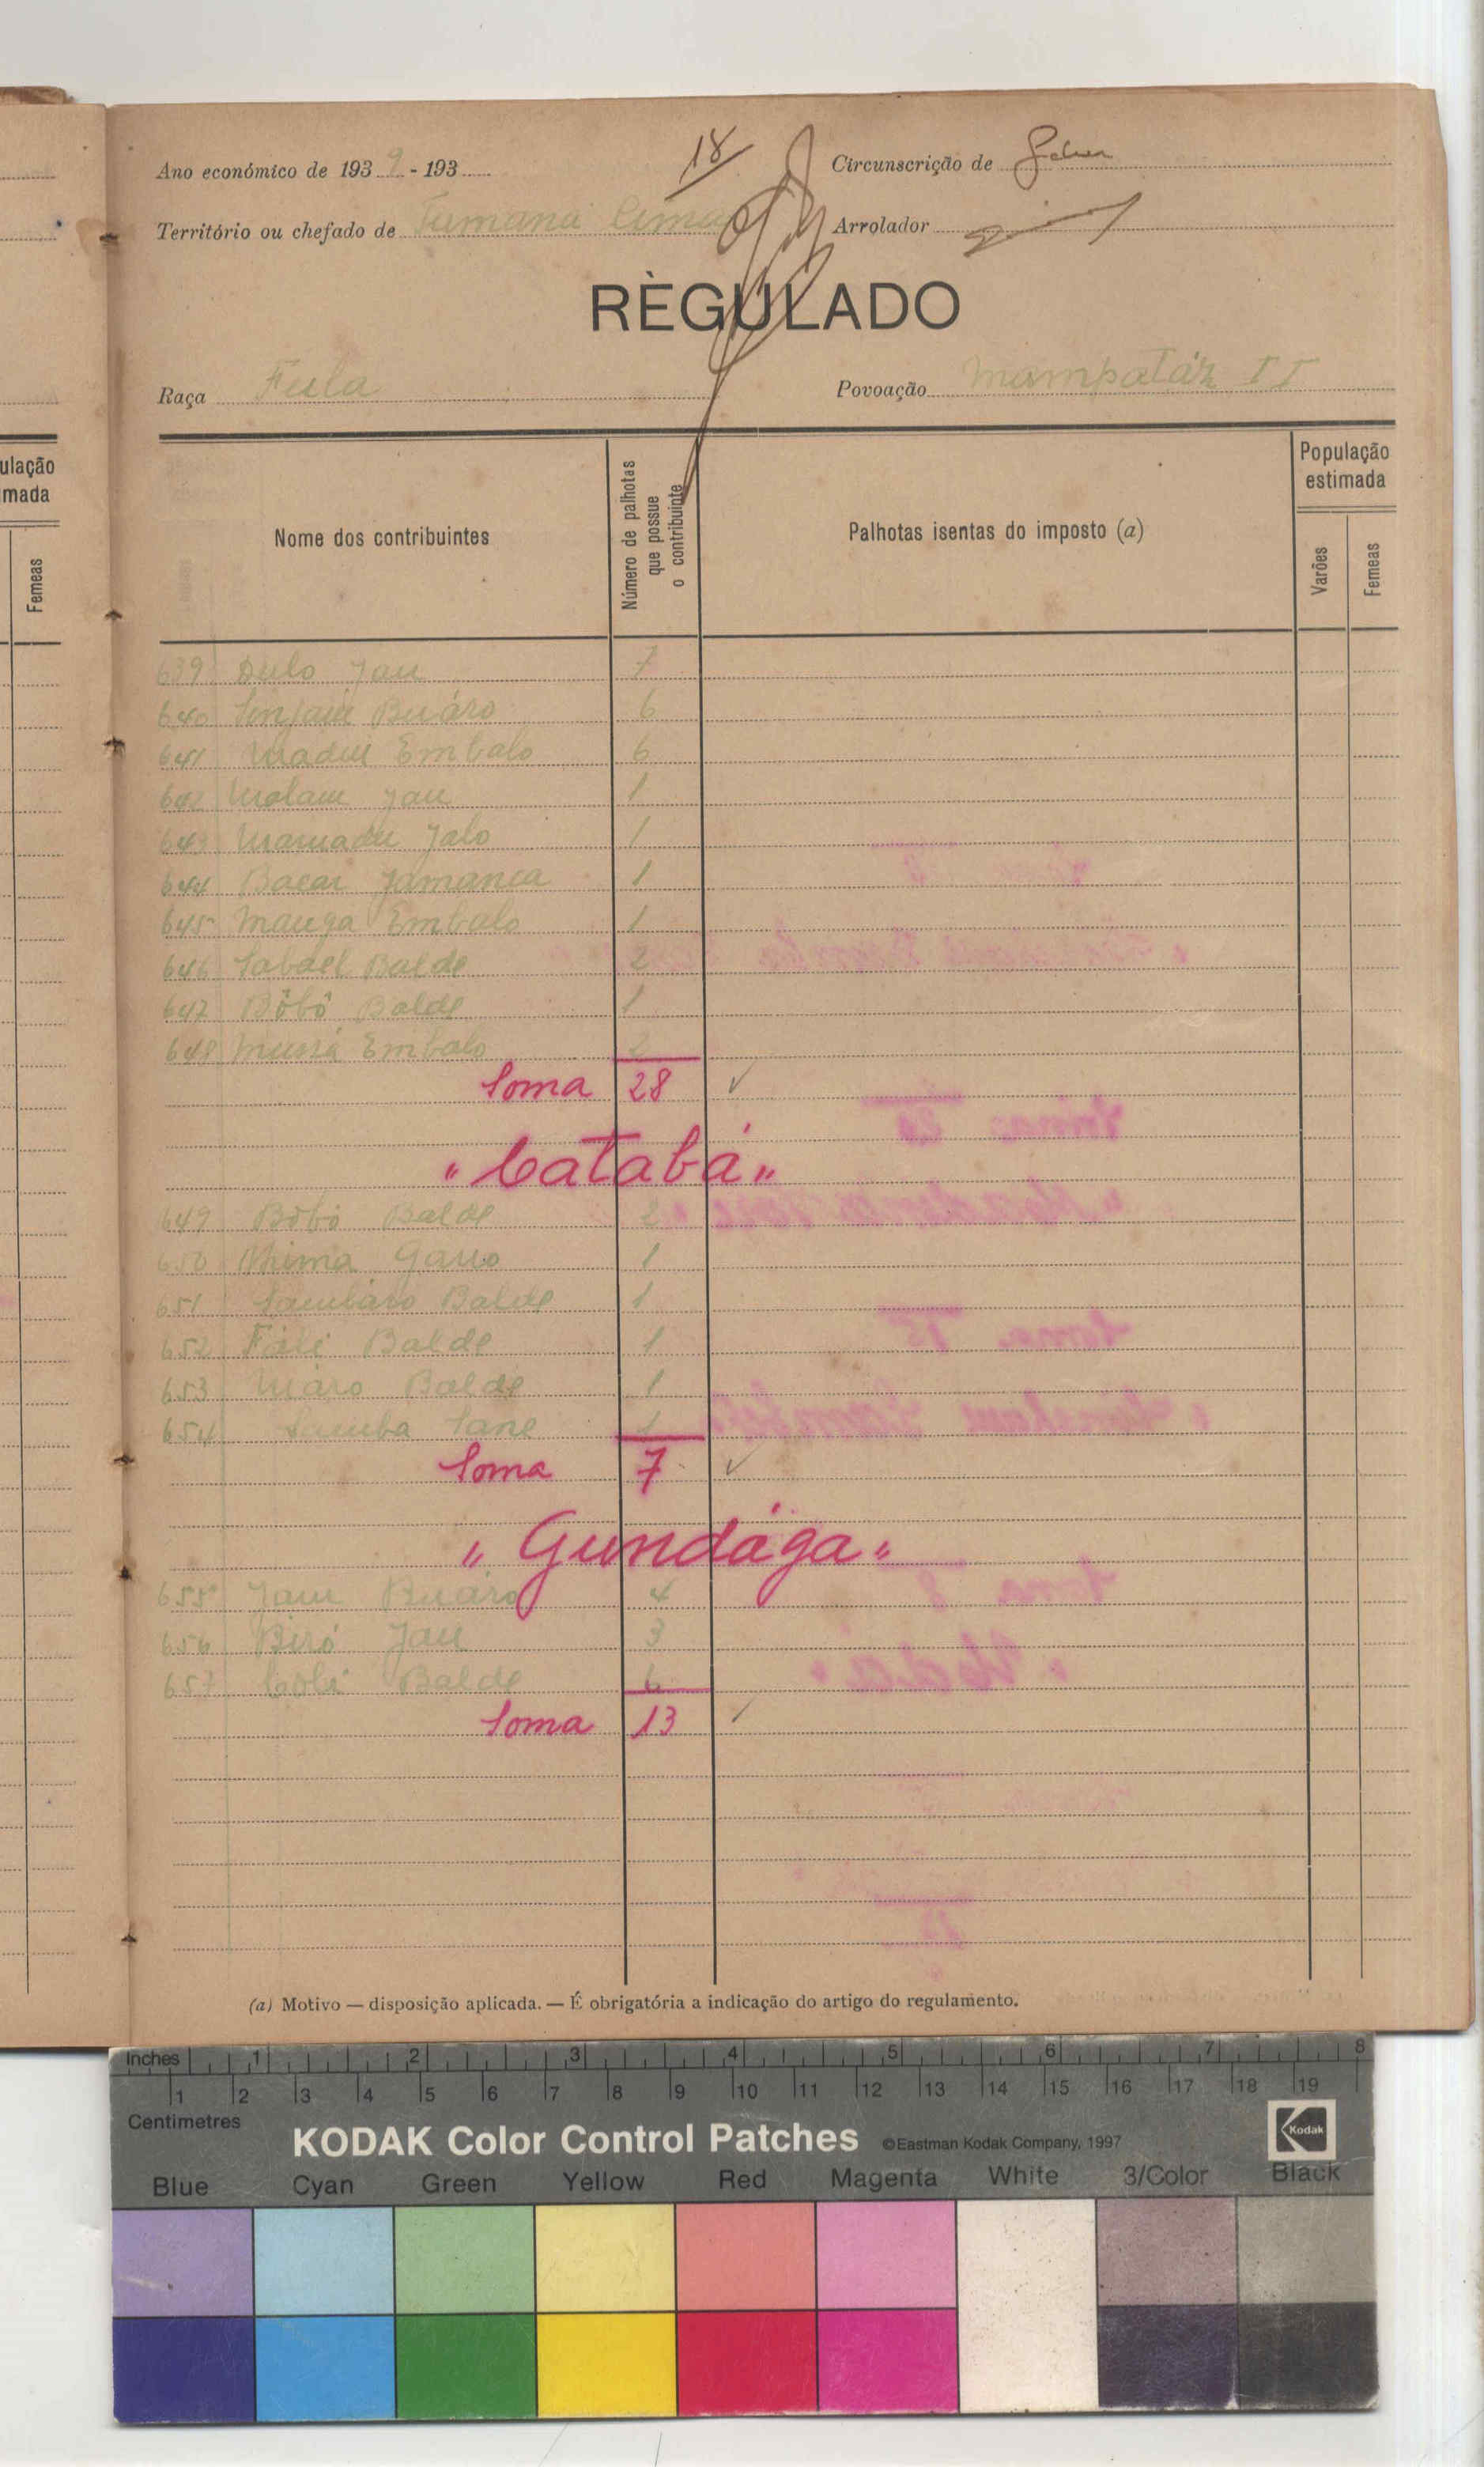 18
Ano económico de 1939-193
Circunscrição de
Território ou chefado de Tumana Cima
Arrolador
RÈGULADO
Raça Fula
Povoação Mampatáz II
ulação
mada
Femeas
Nome dos contribuintes
Número de palhotas
que possue
o contribuinte
Palhotas isentas do imposto (a)
População
estimada
Varões
Femeas
639 Dulo Jau 7
640 Buáro 6
641 Madiu Embalo 6
642 Molam Jau 1
643 Mamadu Jalo 1
644 Bacar Jamanca 1
645 Manga Embalo 1
646 Sabael Balde 2
647 Bôbô Balde 1
648 Mussá Embalo 2
Soma 28
"Catabá"
649 Bobo Balde 2
650 Gano 1
651 Sambaro Balde 1
652 Fali Balde 1
653 Maro Balde 1
654 Samba Sane 1
Soma 7
"Gundága"
655 Buáro 4
656 Biró Jau 3
657 Coli Balde 6
Soma 13
(a) Motivo — disposição aplicada. — É obrigatória a indicação do artigo do regulamento.
Inches 1 2 3 4 5 6 7 8
1 2 3 4 5 6 7 8 9 10 11 12 13 14 15 16 17 18 19
Centimetres
KODAK Color Control Patches ©Eastman Kodak Company, 1997 Kodak
Blue Cyan Green Yellow Red Magenta White 3/Color Black